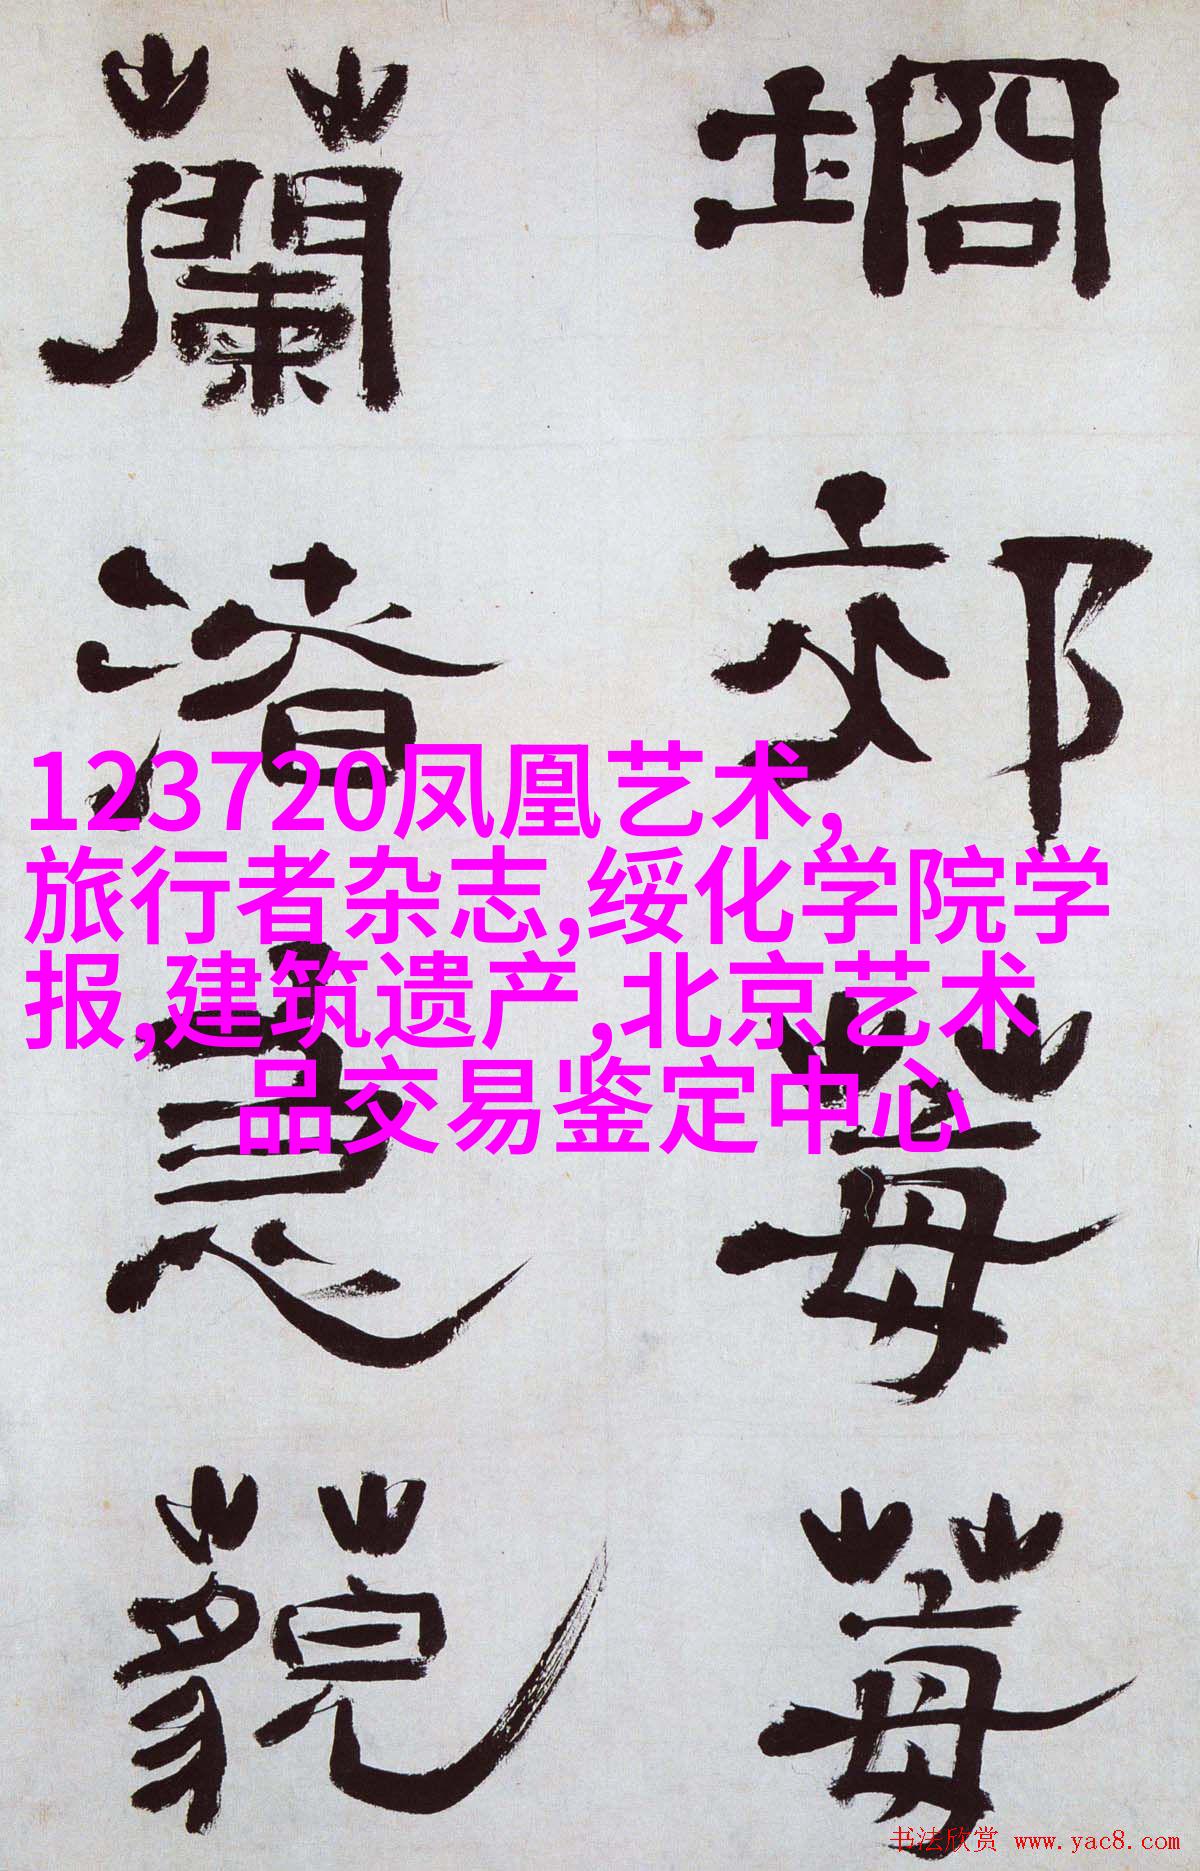 埛郊莓莓
蘭渚藐
123720凤凰艺术,
旅行者杂志,绥化学院学
报,建筑遗产,北京艺术
品交易鉴定中心
书法欣赏 www.yac8.com